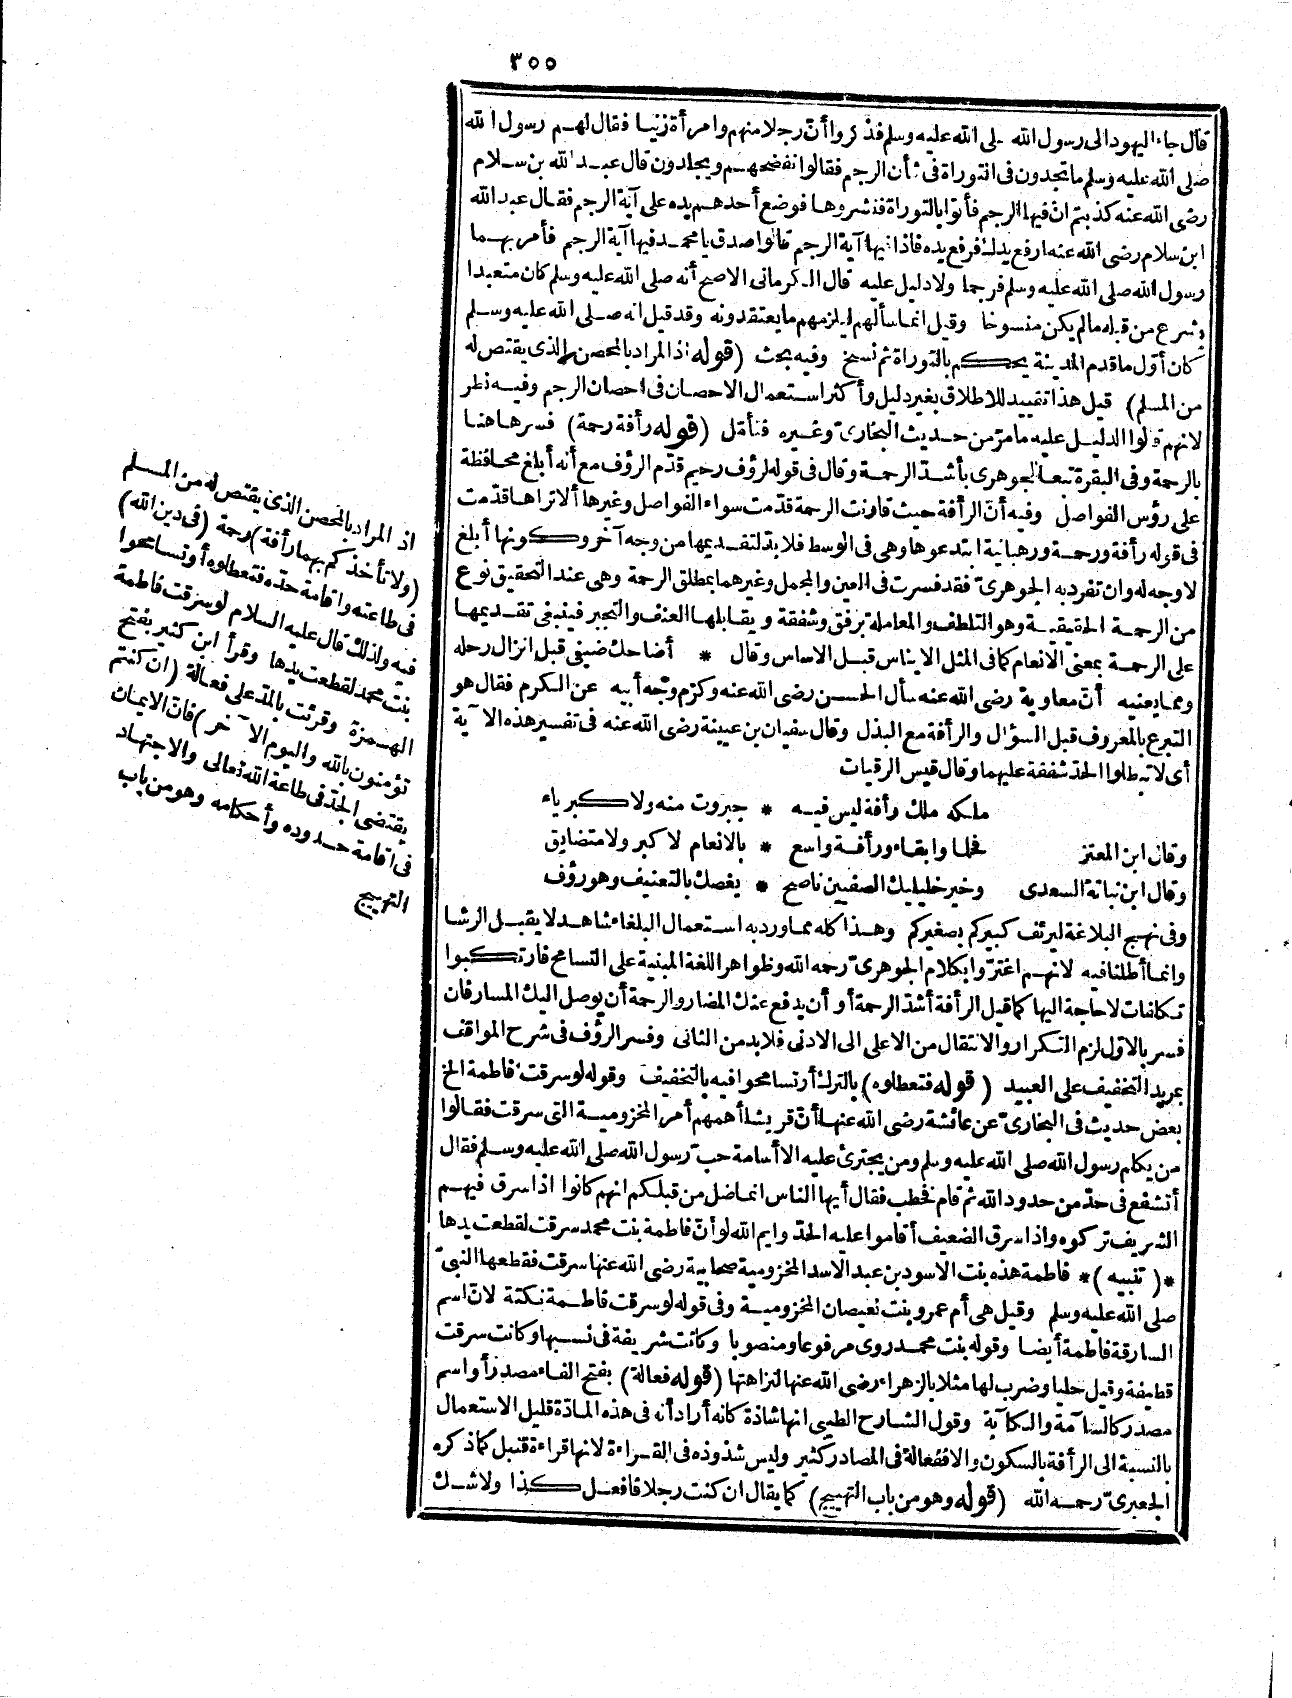 ٣٥٥
قال جاء اليهود الى رسول الله صلى الله عليه وسلم فذكروا أن رجلا منهم وامرأة زنيا فقال لهم رسول الله
صلى الله عليه وسلم ما تجدون فى التوراة فى شأن الرجم فقالوا نفضحهم ويجلدون قال عبد الله بن سلام
رضى الله عنه كذبتم ان فيها الرجم فأتوا بالتوراة فنشروها فوضع أحدهم يده على آية الرجم فقال عبد الله
ابن سلام رضى الله عنه ارفع يدك فرفع يده فاذا فيها آية الرجم قالوا صدق يا محمد فيها آية الرجم فأمر بهما
رسول الله صلى الله عليه وسلم فرجما ولا دليل عليه قال الكرمانى الاصح أنه صلى الله عليه وسلم كان متعبدا
بشرع من قبله ما لم يكن منسوخا وقيل انما سألهم ليلزمهم ما يعتقدونه وقد قيل انه صلى الله عليه وسلم
كان أول ما قدم المدينة يحكم بالتوراة ثم نسخ وفيه بحث (قوله اذ المراد بالمحصن الذى يقتص له
من المسلم) قيل هذا تقييد للاطلاق بغير دليل وأكثر استعمال الاحصان فى احصان الرجم وفيه نظر
لانهم قالوا الدليل عليه ما مر من حديث البخارى وغيره فتأمل (قوله رأفة رحمة) فسرها هنا
بالرحمة وفى البقرة تبعا للجوهرى بأشد الرحمة وقال فى قوله لرؤف رحيم قدم الرؤف مع أنه أبلغ محافظة
على رؤس الفواصل وفيه أن الرأفة حيث قارنت الرحمة قدمت سواء الفواصل وغيرها ألا تراها قدمت
فى قوله رأفة ورحمة ورهبانية ابتدعوها وهى فى الوسط فلا بد لتقديمها من وجه آخر وكونها أبلغ
لا وجه له وان تفرد به الجوهرى فقد فسرت فى العين والمجمل وغيرهما بمطلق الرحمة وهى عند التحقيق نوع
من الرحمة الحقيقية وهو التلطف والمعاملة برفق وشفقة ويقابلها العنف والتجبر فينبغى تقديمها
على الرحمة بمعنى الانعام كما فى المثل الايناس قبل الاساس وقال * أضاحك ضيفى قبل انزال رحله
ومما يعنيه أن معاوية رضى الله عنه سأل الحسن رضى الله عنه وكرم وجه أبيه عن الكرم فقال هو
التبرع بالمعروف قبل السؤال والرأفة مع البذل وقال سفيان بن عيينة رضى الله عنه فى تفسير هذه الآية
أى لا تبطلوا الحد شفقة عليهما وقال قيس الرقيات
ملكه ملك رأفة ليس فيه * جبروت منه ولا كبرياء
وقال ابن المعتز فحلما وابقاء ورأفة واسع * بالانعام لا كبر ولا متضايق
وقال ابن نباتة السعدى وخير خليليك الصفيين ناصح * يغصك بالتعنيف وهو رؤف
وفى نهج البلاغة ليرئف كبيركم بصغيركم وهذا كله مما ورد به استعمال البلغاء شاهد لا يقبل الرشا
وانما أطلنا فيه لانهم اغتروا بكلام الجوهرى رحمه الله وظواهر اللغة المبنية على التسامح فارتكبوا
تكلفات لا حاجة اليها كما قيل الرأفة أشد الرحمة أو أن يدفع عنك المضار والرحمة أن يوصل اليك المسار فان
فسر بالاول لزم التكرار والانتقال من الاعلى الى الادنى فلا بد من الثانى وفسر الرؤف فى شرح المواقف
بمريد التخفيف على العبيد (قوله فتعطلوه) بالترك أو تسامحوا فيه بالتخفيف وقوله لو سرقت فاطمة الخ
بعض حديث فى البخارى عن عائشة رضى الله عنها أن قريشا أهمهم أمر المخزومية التى سرقت فقالوا
من يكلم رسول الله صلى الله عليه وسلم ومن يجترئ عليه الا أسامة حب رسول الله صلى الله عليه وسلم فقال
أتشفع فى حد من حدود الله ثم قام فخطب فقال أيها الناس انما ضل من قبلكم انهم كانوا اذا سرق فيهم
الشريف تركوه واذا سرق الضعيف أقاموا عليه الحد وايم الله لو أن فاطمة بنت محمد سرقت لقطعت يدها
*(تنبيه)* فاطمة هذه بنت الاسود بن عبد الاسد المخزومية صحابية رضى الله عنها سرقت فقطعها النبى
صلى الله عليه وسلم وقيل هى أم عمرو بنت نعيصان المخزومية وفى قوله لو سرقت فاطمة نكتة لان اسم
السارقة فاطمة أيضا وقوله بنت محمد روى مرفوعا ومنصوبا وكانت شريفة فى نسبها وكانت سرقت
قطيفة وقيل حليا وضرب لها مثلا بالزهراء رضى الله عنها لنزاهتها (قوله فعالة) بفتح الفاء مصدر أو اسم
مصدر كالسآمة والكآبة وقول الشارح الطيبى انها شاذة كانه أراد أنه فى هذه المادة قليل الاستعمال
بالنسبة الى الرأفة بالسكون والا ففعالة فى المصادر كثير وليس شذوذه فى القراءة لانها قراءة قنبل كما ذكره
الجعبرى رحمه الله (قوله وهو من باب التهييج) كما يقال ان كنت رجلا فافعل كذا ولا شك
اذ المراد بالمحصن الذى يقتص له من المسلم
(ولا تأخذكم بهما رأفة) رحمة (فى دين الله)
فى طاعته واقامة حده فتعطلوه أو تسامحوا
فيه ولذلك قال عليه السلام لو سرقت فاطمة
بنت محمد لقطعت يدها وقرأ ابن كثير بفتح
الهمزة وقرئت بالمد على فعالة (ان كنتم
تؤمنون بالله واليوم الآخر) فان الايمان
يقتضى الجد فى طاعة الله تعالى والاجتهاد
فى اقامة حدوده وأحكامه وهو من باب
التهييج